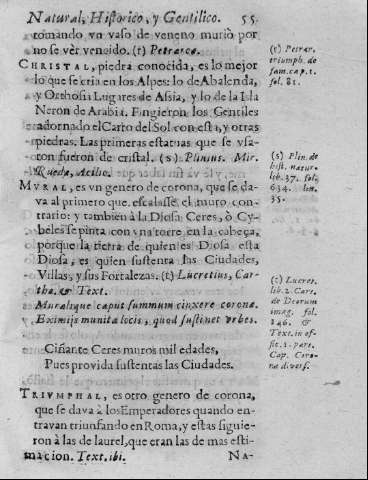 Natural, Historico, y Gentilico. 55.
tomando vn vaso de veneno muriò por
no se ver vencido. (r) Petrarca.
CHRISTAL, piedra conocida, es lo mejor
lo que se cria en los Alpes: lo de Abalenda,
y Orthosia Lugares de Assia, y lo de la Isla
Neron de Arabia. Fingieron los Gentiles
adornado el Carro del Sol con esta, y otras
piedras. Las primeras estatuas que se vsa-
ron fueron de cristal. (s) Plinius. Mir.
Rueda, Acilio.
MVRAL, es vn genero de corona, que se da-
va al primero que escalasse el muro con-
trario: y tambien à la Diosa Ceres, ò Cy-
beles se pinta con vna torre en la cabeça,
porque la tierra de quien es Diosa esta
Diosa, es quien sustenta las Ciudades,
Villas, y sus Fortalezas. (t) Lucretius, Car-
tha. & Text.
Muralique caput summum cinxere corona.
Eximijs munita locis, quod sustinet vrbes.
Ciñante Ceres muros mil edades,
Pues provida sustentas las Ciudades.
TRIVMPHAL, es otro genero de corona,
que se dava à los Emperadores quando en-
travan triunfando en Roma, y estas siguie-
ron à las de laurel, que eran las de mas esti-
macion. Text. ibi.
NA-
(r) Petrar.
triumph. de
fam. cap. 1.
fol. 81.
(s) Plin. de
hist. natur.
lib. 37. fol.
634. lin.
35.
(t) Lucret.
lib. 2. Cart.
de Deorum
imag. fol.
146. &
Text. in of-
fic. 1. part.
Cap. Coro-
na divers.